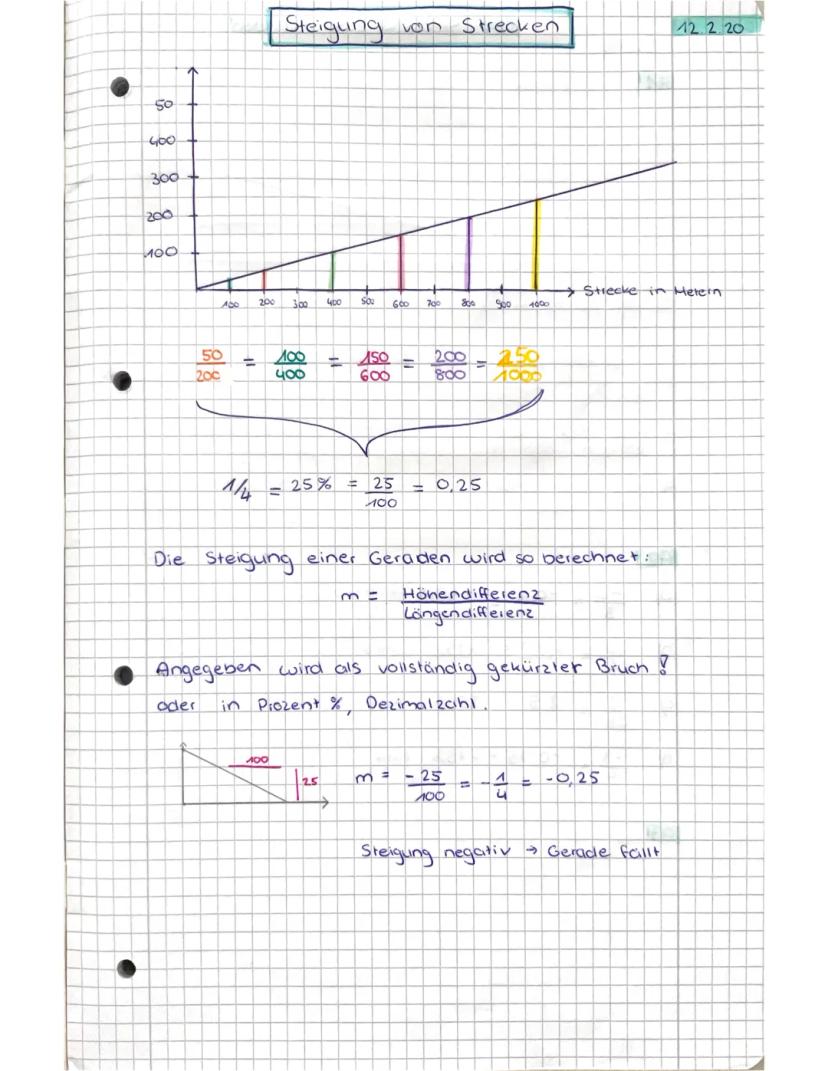 Steigung von Strecken
12.2.20
50
400
300
200
100
100 200 300 400 500 600 700 800 900 1000 Strecke in Metern
50/200 = 100/400 = 150/600 = 200/800 = 250/1000
1/4 = 25% = 25/100 = 0,25
Die Steigung einer Geraden wird so berechnet:
m = Höhendifferenz/Längendifferenz
Angegeben wird als vollständig gekürzter Bruch!
oder in Prozent %, Dezimalzahl.
100
25
m = -25/100 = -1/4 = -0,25
Steigung negativ → Gerade fällt